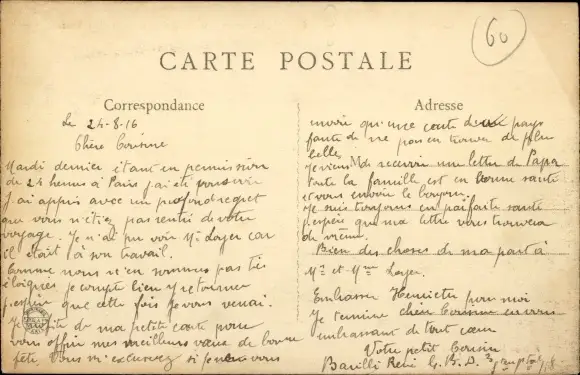 60
CARTE POSTALE
Correspondance
Le 24-8-16
Chère Cousine
Mardi dernier étant en permission
de 24 heures à Paris j'ai été vous voir
J'ai appris avec un profond regret
que vous n'étiez pas rentré de votre
voyage. Je n'ai pu voir Mr Loyer car
il était à son travail.
Comme nous n'en sommes pas très
éloignés je compte bien y retourner
j'espère que cette fois je vous verrai.
Je profite de ma petite carte pour
vous offrir mes meilleurs vœux de bonne
fête. Vous m'excuserez si je vous
Adresse
envoie qu'une carte de pays
faute de ne pas en trouver de plus
belles.
Je viens de recevoir une lettre de Papa
toute la famille est en bonne santé
et vous envoie le bonjour.
Je suis toujours en parfaite santé
j'espère que ma lettre vous trouvera
de même.
Bien des choses de ma part à
Mr et Mme Loyer.
Embrasser Henriette pour moi
Je termine chère Cousine en vous
embrassant de tout cœur
Votre petit Cousin
Barilli René